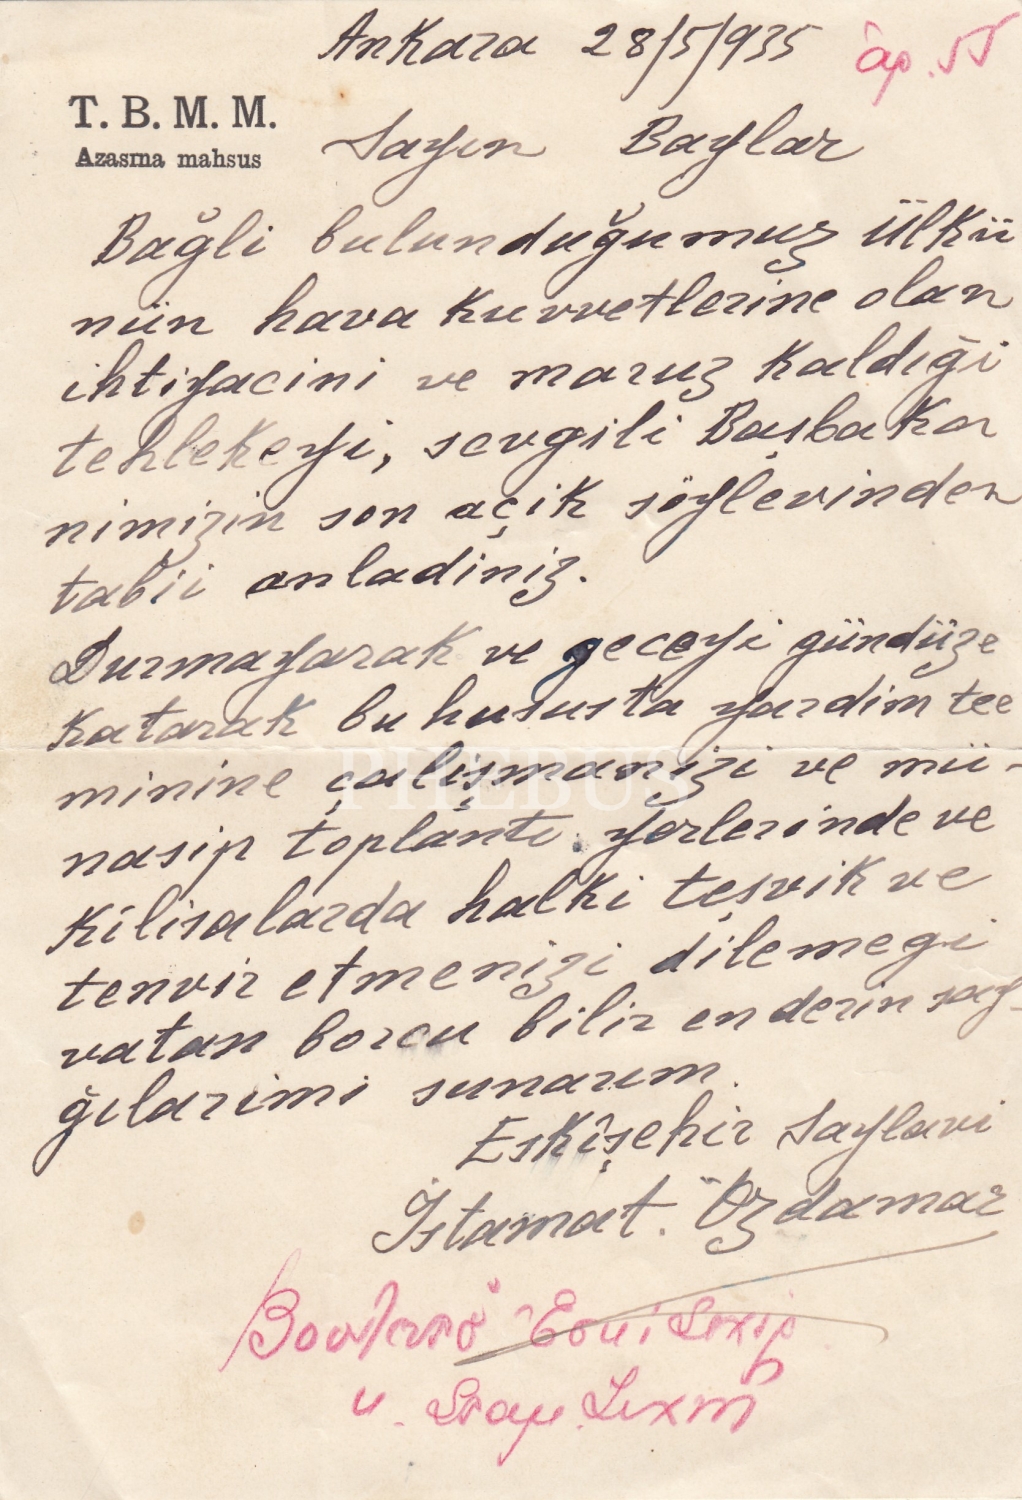 Ankara 28/5/935
άρ. 55
T. B. M. M.
Azasına mahsus
Sayın Baylar
Bağli bulunduğumuz ülkü
nün hava kuvvetlerine olan
ihtiyacini ve maruz kaldıği
tehlekeyi, sevgili Başbakan
nimizin son açik söylevinden
tabii anladiniz.
Durmayarak ve geceyi gündüze
katarak bu hususta yardim tee
minine çalışmanizi ve mü-
nasip toplantı yerlerinde ve
kilisalarda halki teşvik ve
tenvir etmenizi dilemegi
vatan borcu bilir en derin say-
ğılarimi sunarım.
Eskişehir Saylavi
İstamat. Özdamar
Βουλευτού Εσκί Σεχίρ
κ. Σταμ.
PHEBUS